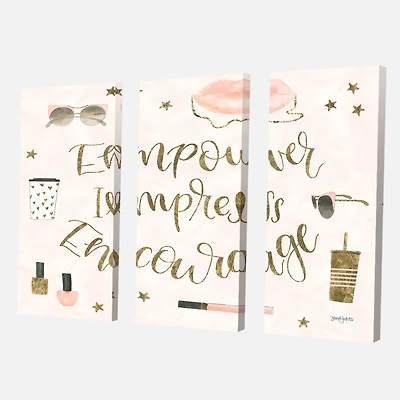 Empower
Impress
Encourage